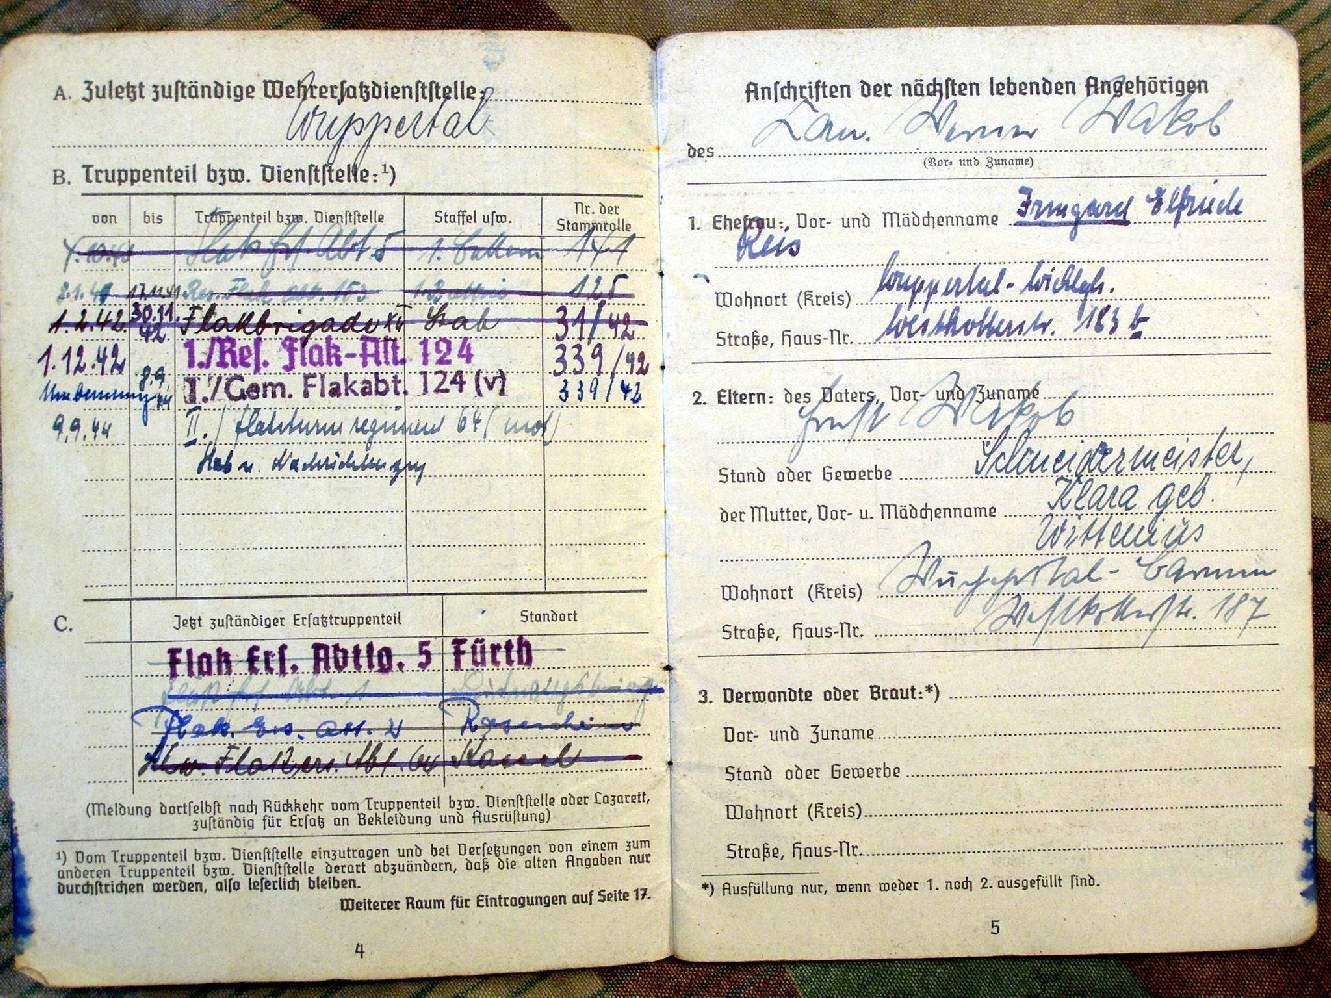 A. Zuletzt zuständige Wehrersatzdienststelle:
Wuppertal
B. Truppenteil bzw. Dienststelle:¹)
von bis Truppenteil bzw. Dienststelle Staffel usw. Nr. der Stammrolle
Flak Ers. Abt 5 1. 141
2.1.41 17.11.41 Res. Flak Abt. 125
1.2.42 30.11.42 Flakbrigade XV Stab 31/42
1.12.42 1./Res. Flak-Abt. 124 339/42
Umbenennung 8.9.44 1./Gem. Flakabt. 124 (v) 339/42
9.9.44 II./Flakturmregiment 64 (mot)
Stab u. Nachrichtenzug
C. Jetzt zuständiger Ersatztruppenteil Standort
Flak Ers. Abtlg. 5 Fürth
Flak Ers. Abt. 1
Flak. Ers. Abt.
Flakers. Abt. 64 Kassel
(Meldung dortselbst nach Rückkehr vom Truppenteil bzw. Dienststelle oder Lazarett,
zuständig für Ersatz an Bekleidung und Ausrüstung)
¹) Vom Truppenteil bzw. Dienststelle einzutragen und bei Versetzungen von einem zum
anderen Truppenteil bzw. Dienststelle derart abzuändern, daß die alten Angaben nur
durchstrichen werden, also leserlich bleiben.
Weiterer Raum für Eintragungen auf Seite 17.
4
Anschriften der nächsten lebenden Angehörigen
des Kan. Werner Wakob
(Vor- und Zuname)
1. Ehefrau:, Vor- und Mädchenname Irmgard Elfriede
Reis
Wohnort (Kreis) Wuppertal-Wichlgh.
Straße, Haus-Nr. Westkotterstr. 183 b
2. Eltern: des Vaters, Vor- und Zuname
Ernst Wakob
Stand oder Gewerbe Schneidermeister,
der Mutter, Vor- u. Mädchenname Klara geb.
Wittenius
Wohnort (Kreis) Wuppertal-Barmen
Straße, Haus-Nr. Westkotterstr. 187
3. Verwandte oder Braut:*)
Vor- und Zuname
Stand oder Gewerbe
Wohnort (Kreis)
Straße, Haus-Nr.
*) Ausfüllung nur, wenn weder 1. noch 2. ausgefüllt sind.
5